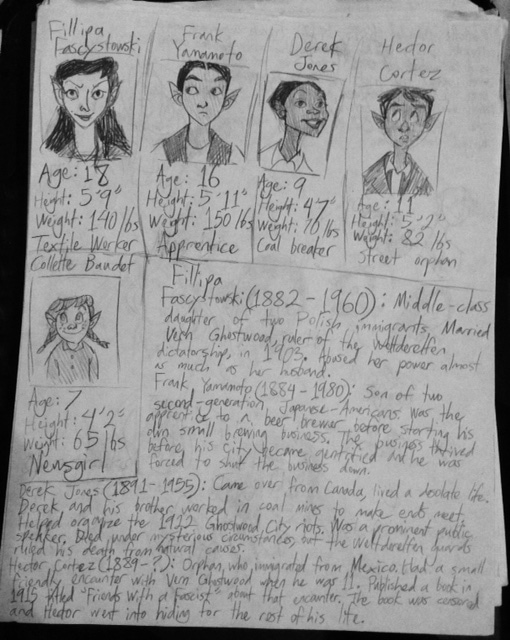 Fillipa
Fascystowski
Age: 18
Height: 5'9"
Weight: 140/lbs
Textile Worker
Frank
Yamamoto
Age: 16
Height: 5'11"
Weight: 150/lbs
Apprentice
Derek
Jones
Age: 9
Height: 4'7"
Weight: 70/lbs
Coal breaker
Hector
Cortez
Age: 11
Height: 5'2"
Weight: 82/lbs
street orphan
Collette Baudet
Age: 7
Height: 4'2"
Weight: 65/lbs
Newsgirl
Fillipa
Fascystowski (1882-1960): Middle-class
daughter of two Polish immigrants. Married
Vern Ghostwood, ruler of the Weltderetten
dictatorship, in 1903. Abused her power almost
as much as her husband.
Frank Yamamoto (1884-1980): Son of two
second-generation Japanese-Americans. Was the
apprentice to a beer brewer before starting his
own small brewing business. The business thrived
before his city became gentrified and he was
forced to shut the business down.
Derek Jones (1891-1955): Came over from Canada, lived a desolate life.
Derek and his brother worked in coal mines to make ends meet.
Helped organize the 1912 Ghostwood City riots. Was a prominent public
speaker. Died under mysterious circumstances, but the Weltderetten guards
ruled his death from natural causes.
Hector Cortez (1889-?): Orphan, who immigrated from Mexico. Had a small
friendly encounter with Vern Ghostwood when he was 11. Published a book in
1915 titled "Friends with a Fascist" about that encounter. The book was censored
and Hector went into hiding for the rest of his life.